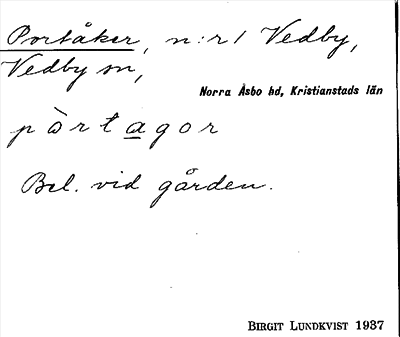 Portåker, n:r 1 Vedby,
Vedby sn,
Norra Åsbo hd, Kristianstads län
pòrtagor
Bel. vid gården.
BIRGIT LUNDKVIST 1937